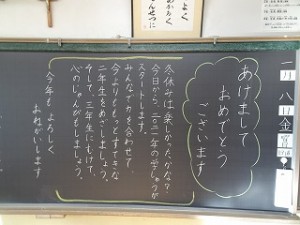 一月八日金
あけまして
おめでとう
ございます
冬休みは楽しかったかな？
今日から、二〇二一年の学しゅうが
スタートします。
みんなで力を合わせて、
今よりももっとすてきな
二年生をめざしましょう。
そして、三年生にむけて、
心のじゅんびもしましょう。
今年も よろしく
おねがいします